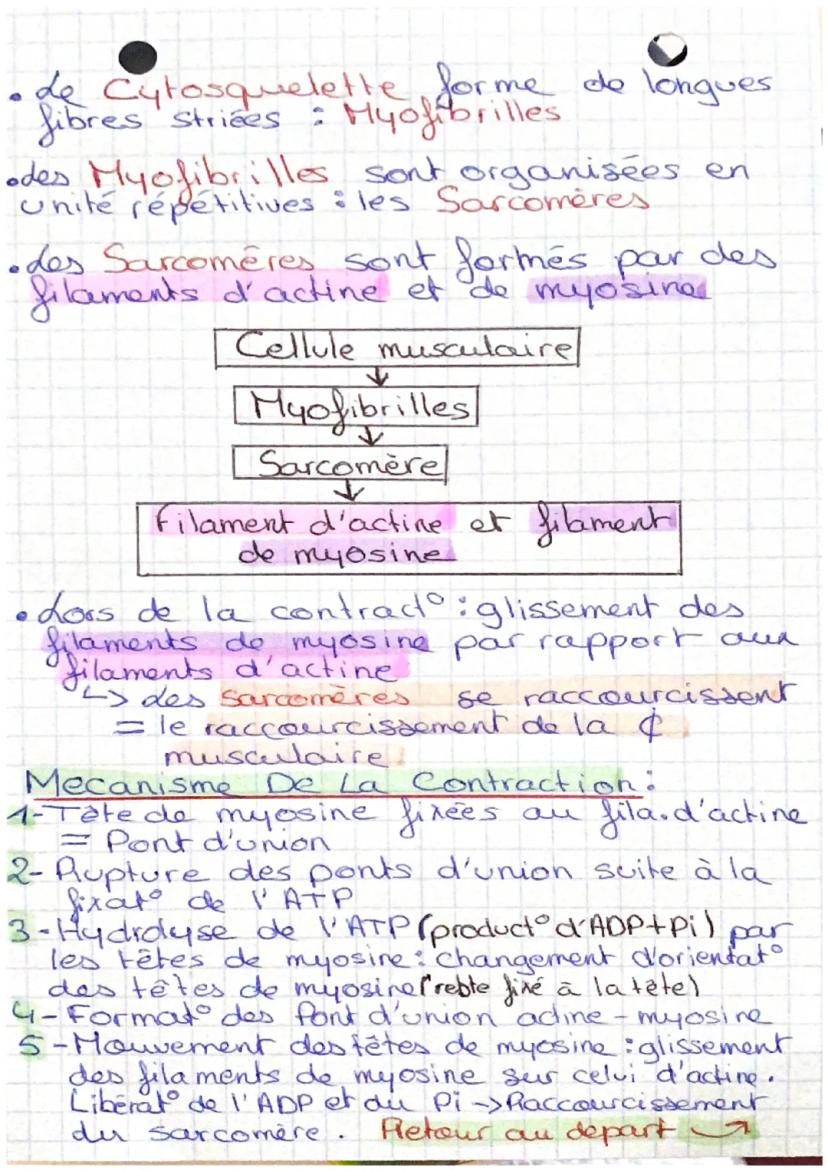 • Le Cytosquelette forme de longues
fibres striées : Myofibrilles
• Les Myofibrilles sont organisées en
unité répétitives : les Sarcomères
• Les Sarcomères sont formés par des
filaments d'actine et de myosine
Cellule musculaire
↓
Myofibrilles
↓
Sarcomère
↓
Filament d'actine et filament
de myosine
• Lors de la contract° : glissement des
filaments de myosine par rapport aux
filaments d'actine
↳ des sarcomères se raccourcissent
= le raccourcissement de la ¢
musculaire
Mecanisme De La Contraction :
1- Tête de myosine fixées au fila. d'actine
= Pont d'union
2- Rupture des ponts d'union suite à la
fixat° de l'ATP
3- Hydrolyse de l'ATP (product° d'ADP+Pi) par
les têtes de myosine : changement d'orientat°
des têtes de myosine (reste fixé à la tête)
4- Format° des Pont d'union actine - myosine
5- Mouvement des têtes de myosine : glissement
des filaments de myosine sur celui d'actine.
Libérat° de l'ADP et du Pi -> Raccourcissement
du sarcomère. Retour au départ